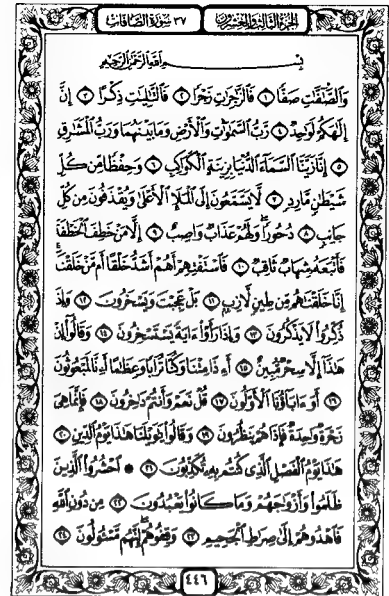 ٣٧ سورة الصافات
الجزء الثالث والعشرون
بسم الله الرحمن الرحيم
وَالصَّٰٓفَّٰتِ صَفًّا ١ فَالزَّٰجِرَٰتِ زَجْرًا ٢ فَالتَّٰلِيَٰتِ ذِكْرًا ٣ إِنَّ
إِلَٰهَكُمْ لَوَٰحِدٌ ٤ رَّبُّ السَّمَٰوَٰتِ وَالْأَرْضِ وَمَا بَيْنَهُمَا وَرَبُّ الْمَشَٰرِقِ
٥ إِنَّا زَيَّنَّا السَّمَآءَ الدُّنْيَا بِزِينَةٍ الْكَوَاكِبِ ٦ وَحِفْظًا مِّن كُلِّ
شَيْطَٰنٍ مَّارِدٍ ٧ لَّا يَسَّمَّعُونَ إِلَى الْمَلَإِ الْأَعْلَىٰ وَيُقْذَفُونَ مِن كُلِّ
جَانِبٍ ٨ دُحُورًا وَلَهُمْ عَذَابٌ وَاصِبٌ ٩ إِلَّا مَنْ خَطِفَ الْخَطْفَةَ
فَأَتْبَعَهُ شِهَابٌ ثَاقِبٌ ١٠ فَاسْتَفْتِهِمْ أَهُمْ أَشَدُّ خَلْقًا أَم مَّنْ خَلَقْنَا
إِنَّا خَلَقْنَٰهُم مِّن طِينٍ لَّازِبٍ ١١ بَلْ عَجِبْتَ وَيَسْخَرُونَ ١٢ وَإِذَا
ذُكِّرُوا لَا يَذْكُرُونَ ١٣ وَإِذَا رَأَوْا ءَايَةً يَسْتَسْخِرُونَ ١٤ وَقَالُوا إِنْ
هَٰذَآ إِلَّا سِحْرٌ مُّبِينٌ ١٥ أَءِذَا مِتْنَا وَكُنَّا تُرَابًا وَعِظَٰمًا أَءِنَّا لَمَبْعُوثُونَ
١٦ أَوَءَابَآؤُنَا الْأَوَّلُونَ ١٧ قُلْ نَعَمْ وَأَنتُمْ دَٰخِرُونَ ١٨ فَإِنَّمَا هِيَ
زَجْرَةٌ وَٰحِدَةٌ فَإِذَا هُمْ يَنظُرُونَ ١٩ وَقَالُوا يَٰوَيْلَنَا هَٰذَا يَوْمُ الدِّينِ ٢٠
هَٰذَا يَوْمُ الْفَصْلِ الَّذِي كُنتُم بِهِ تُكَذِّبُونَ ٢١ ۞ احْشُرُوا الَّذِينَ
ظَلَمُوا وَأَزْوَٰجَهُمْ وَمَا كَانُوا يَعْبُدُونَ ٢٢ مِن دُونِ اللَّهِ
فَاهْدُوهُمْ إِلَىٰ صِرَٰطِ الْجَحِيمِ ٢٣ وَقِفُوهُمْ إِنَّهُم مَّسْـُٔولُونَ ٢٤
٤٤٦